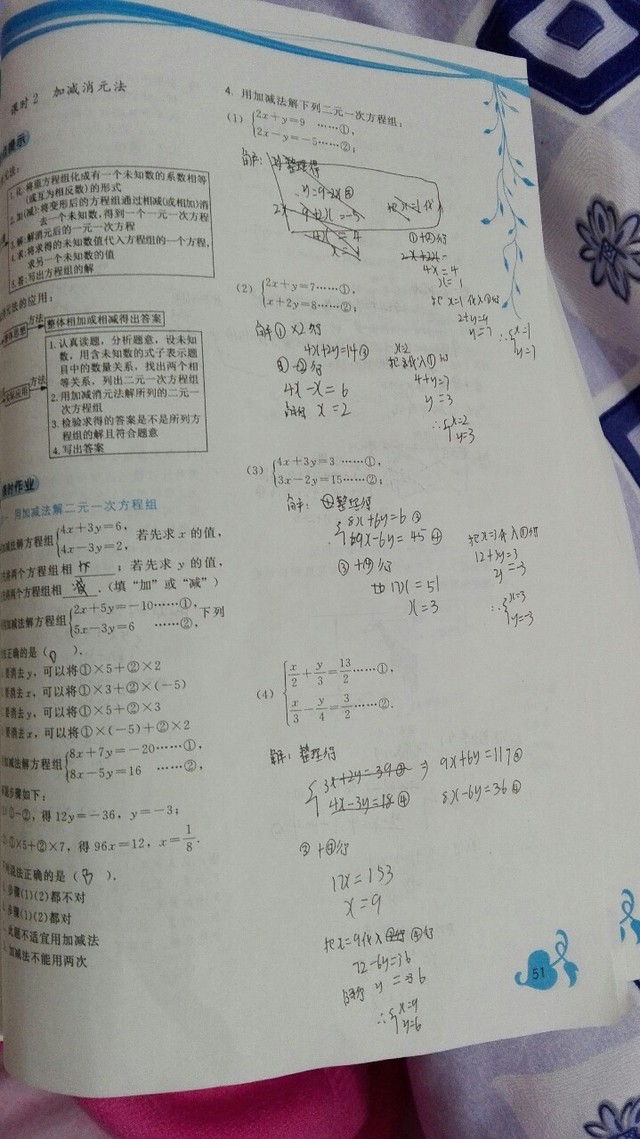 课时2 加减消元法
提示
元法:
1. 化:将原方程组化成有一个未知数的系数相等
(或互为相反数)的形式
2. 加(减):将变形后的方程组通过相减(或相加)消
去一个未知数,得到一个一元一次方程
3. 解:解消元后的一元一次方程
4. 求:将求得的未知数值代入方程组的一个方程,
求另一个未知数的值
5. 答:写出方程组的解
元法的应用:
方法
整体相加或相减得出答案
方法
1. 认真读题,分析题意,设未知
数,用含未知数的式子表示题
目中的数量关系,找出两个相
等关系,列出二元一次方程组
2. 用加减消元法解所列的二元一
次方程组
3. 检验求得的答案是不是所列方
程组的解且符合题意
4. 写出答案
时作业
用加减法解二元一次方程组
加减法解方程组{4x+3y=6, 4x-3y=2, 若先求 x 的值,
将两个方程组相 加 ;若先求 y 的值,
将两个方程组相 减 .(填“加”或“减”)
加减法解方程组{2x+5y=-10……①, 5x-3y=6 ……②, 下列
正确的是( ).
要消去 y,可以将①×5+②×2
消去 x,可以将①×3+②×(-5)
消去 y,可以将①×5+②×3
要消去 x,可以将①×(-5)+②×2
加减法解方程组{8x+7y=-20……①, 8x-5y=16 ……②,
步骤如下:
①-②,得 12y=-36,y=-3;
①×5+②×7,得 96x=12,x=1/8.
说法正确的是( B ).
步骤(1)(2)都不对
步骤(1)(2)都对
此题不适宜用加减法
加减法不能用两次
4. 用加减法解下列二元一次方程组:
(1) {2x+y=9 ……①, 2x-y=-5……②;
解:
整理得
y=9-2x
4x=4
x=1
①+②得
4x=4
x=1
把x=1代入①得
2+y=9
y=7 ∴{x=1 y=7
(2) {2x+y=7……①, x+2y=8……②;
解①×2得
4x+2y=14③
③-②得
4x-x=6
解得 x=2
把x=2代入①得
4+y=7
y=3
∴{x=2 y=3
(3) {4x+3y=3 ……①, 3x-2y=15……②;
解: 整理得
{8x+6y=6③ 9x-6y=45④
③+④得
17x=51
x=3
把x=3代入①得
12+3y=3
y=-3
∴{x=3 y=-3
(4) {x/2+y/3=13/2……①, x/3-y/4=3/2……②.
解: 整理得
{3x+2y=39③ ⇒ 9x+6y=117⑤
4x-3y=18④ 8x-6y=36⑥
⑤+⑥得
17x=153
x=9
把x=9代入⑥得
72-6y=36
解得 y=6
∴{x=9 y=6
51